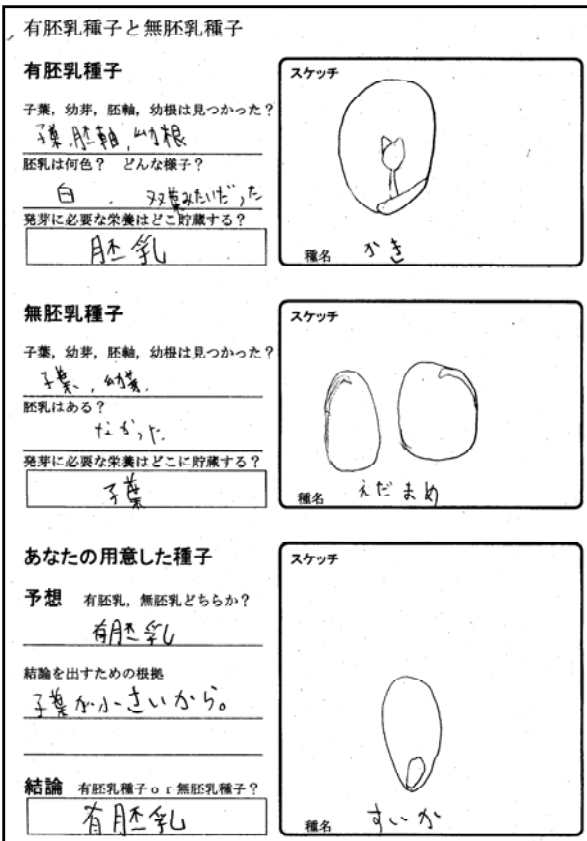 有胚乳種子と無胚乳種子
有胚乳種子
子葉,幼芽,胚軸,幼根は見つかった?
子葉,胚軸,幼根
胚乳は何色? どんな様子?
白 . 双葉みたいだった
発芽に必要な栄養はどこ貯蔵する?
胚乳
スケッチ
種名 かき
無胚乳種子
子葉,幼芽,胚軸,幼根は見つかった?
子葉,幼葉.
胚乳はある?
なかった.
発芽に必要な栄養はどこに貯蔵する?
子葉
スケッチ
種名 えだまめ
あなたの用意した種子
予想 有胚乳,無胚乳どちらか?
有胚乳
結論を出すための根拠
子葉が小さいから。
結論 有胚乳種子or無胚乳種子?
有胚乳
スケッチ
種名 すいか